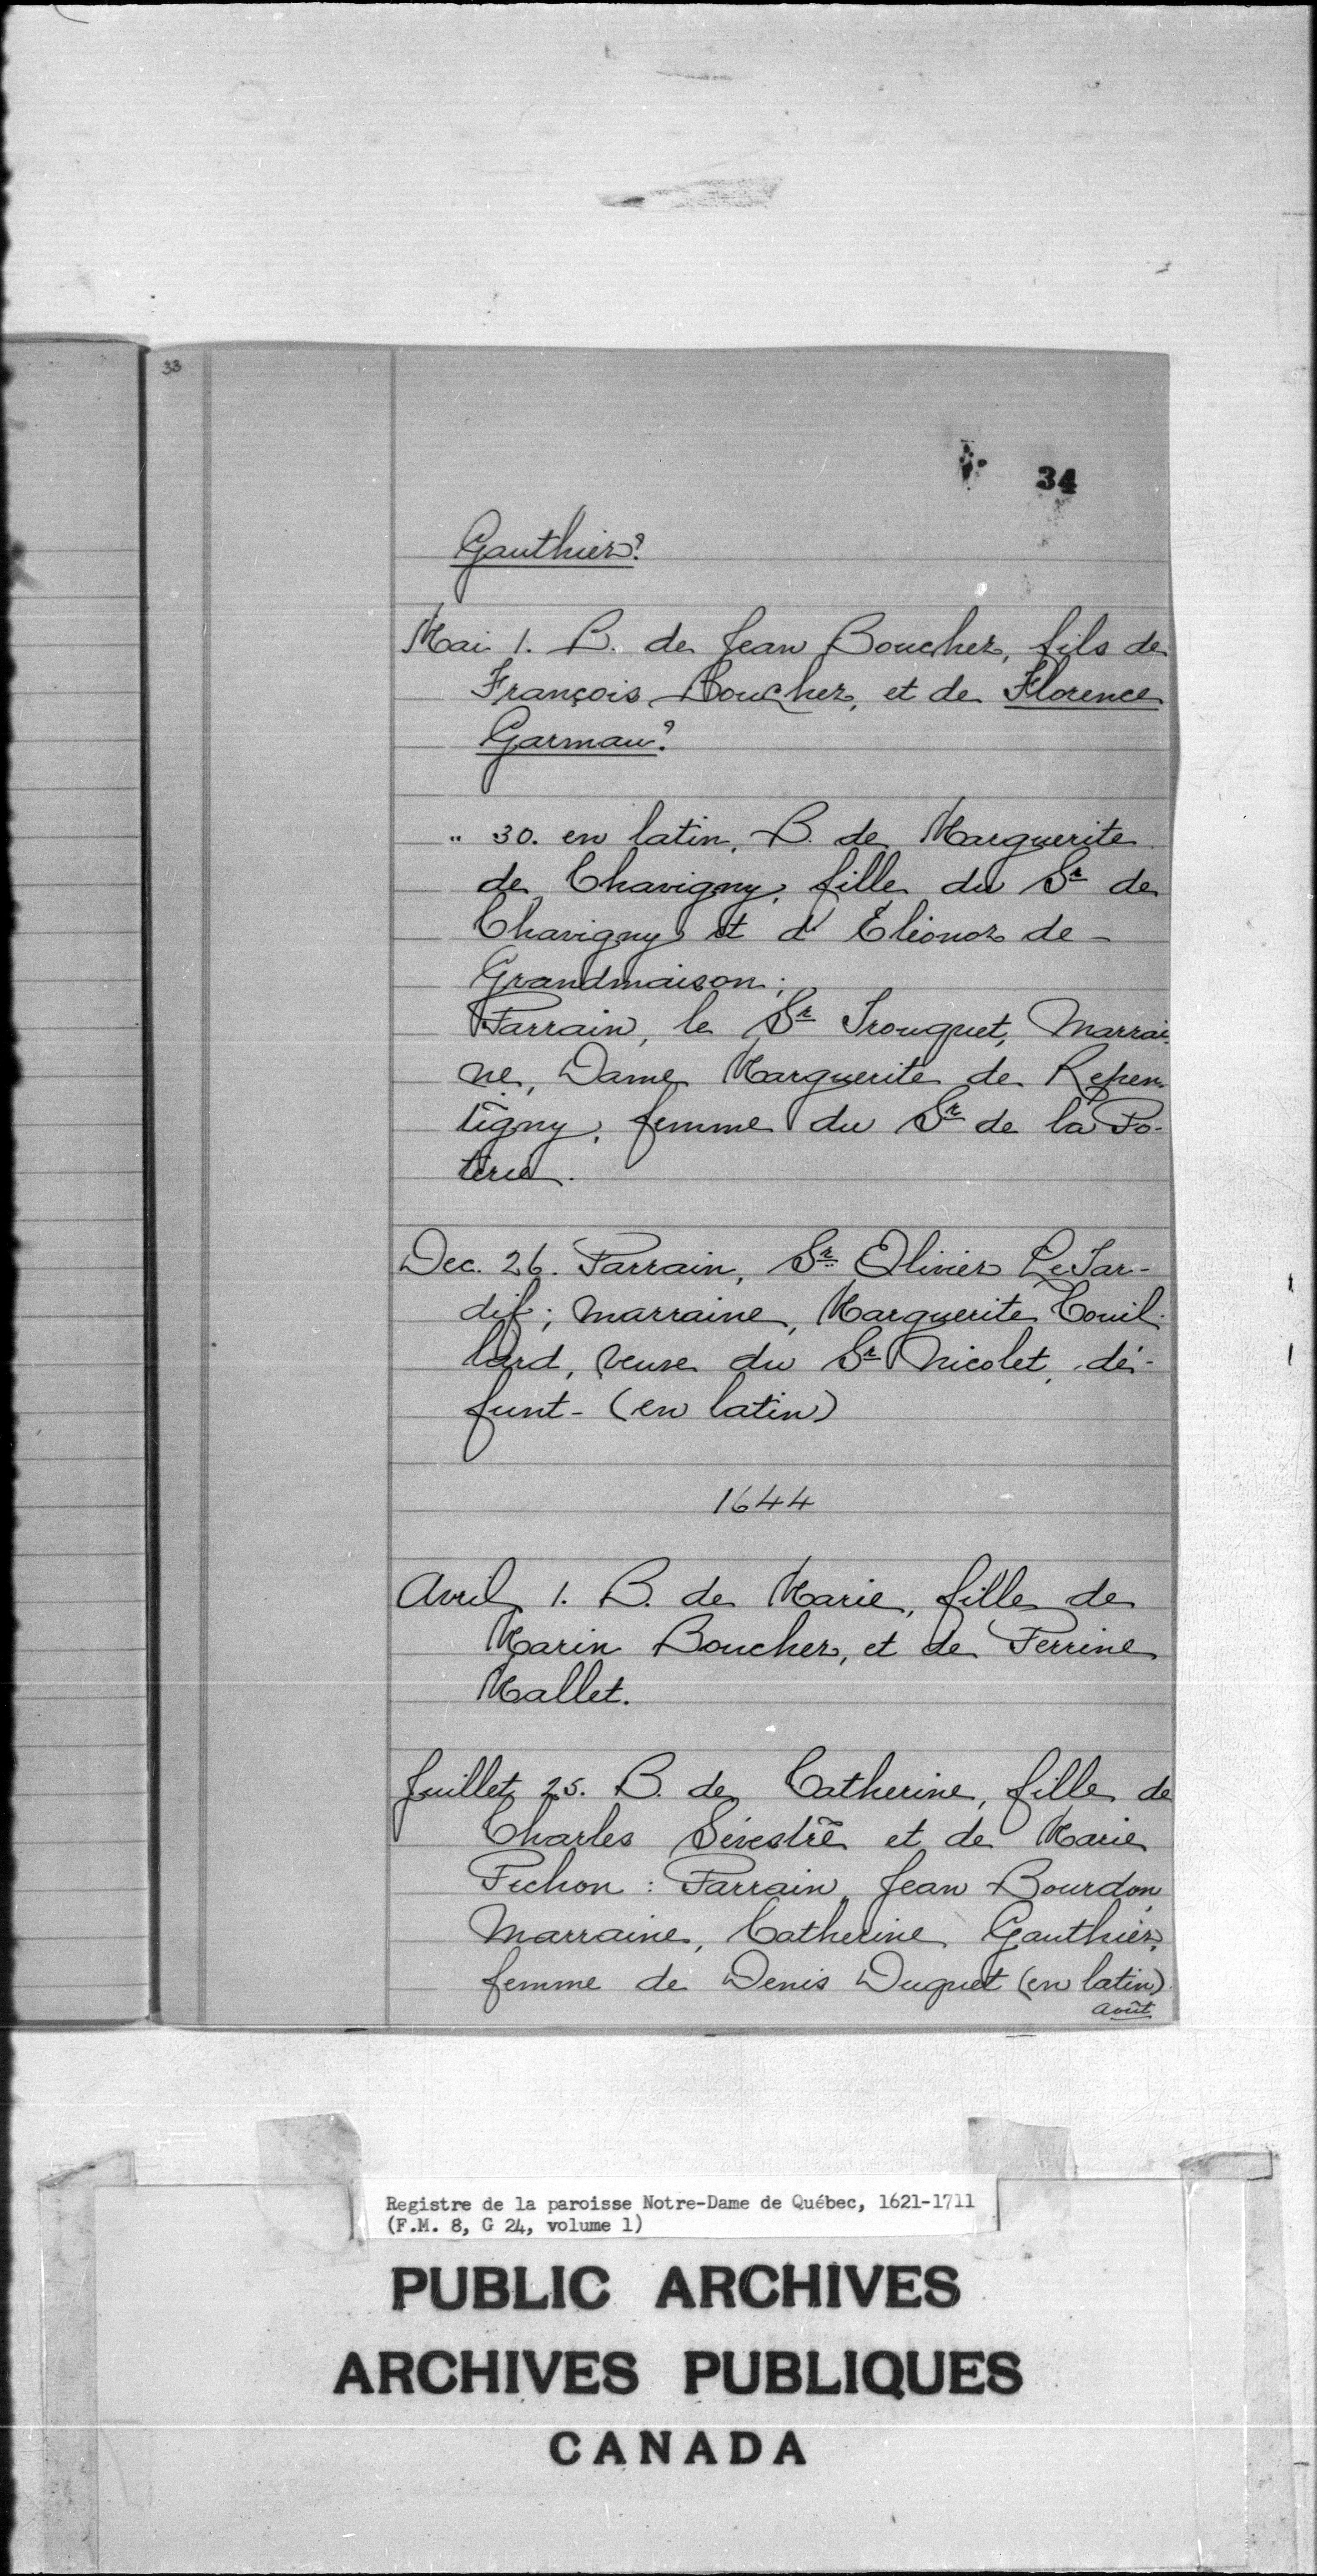 33
34
Gauthier?
Mai 1. B. de Jean Boucher, fils de
François Boucher, et de Florence
Garman?
" 30. en latin, B. de Marguerite
de Chavigny, fille du Sr de
Chavigny et d' Eléonor de
Grandmaison;
Parrain, le Sr Trouquet, Marrai-
ne, Dame Marguerite de Repen-
tigny, femme du Sr de la Po-
terie.
Dec. 26. Parrain, Sr Olivier LeTar-
dif; marraine, Marguerite Couil-
lard, veuve du Sr Nicolet, dé-
funt - (en latin)
1644
Avril 1. B. de Marie, fille de
Marin Boucher, et de Perrine
Mallet.
Juillet 25. B. de Catherine, fille de
Charles Sevestre et de Marie
Pichon : Parrain, Jean Bourdon,
Marraine, Catherine Gauthier,
femme de Denis Duquet (en latin)
Août
Registre de la paroisse Notre-Dame de Québec, 1621-1711
(F.M. 8, G 24, volume 1)
PUBLIC ARCHIVES
ARCHIVES PUBLIQUES
CANADA